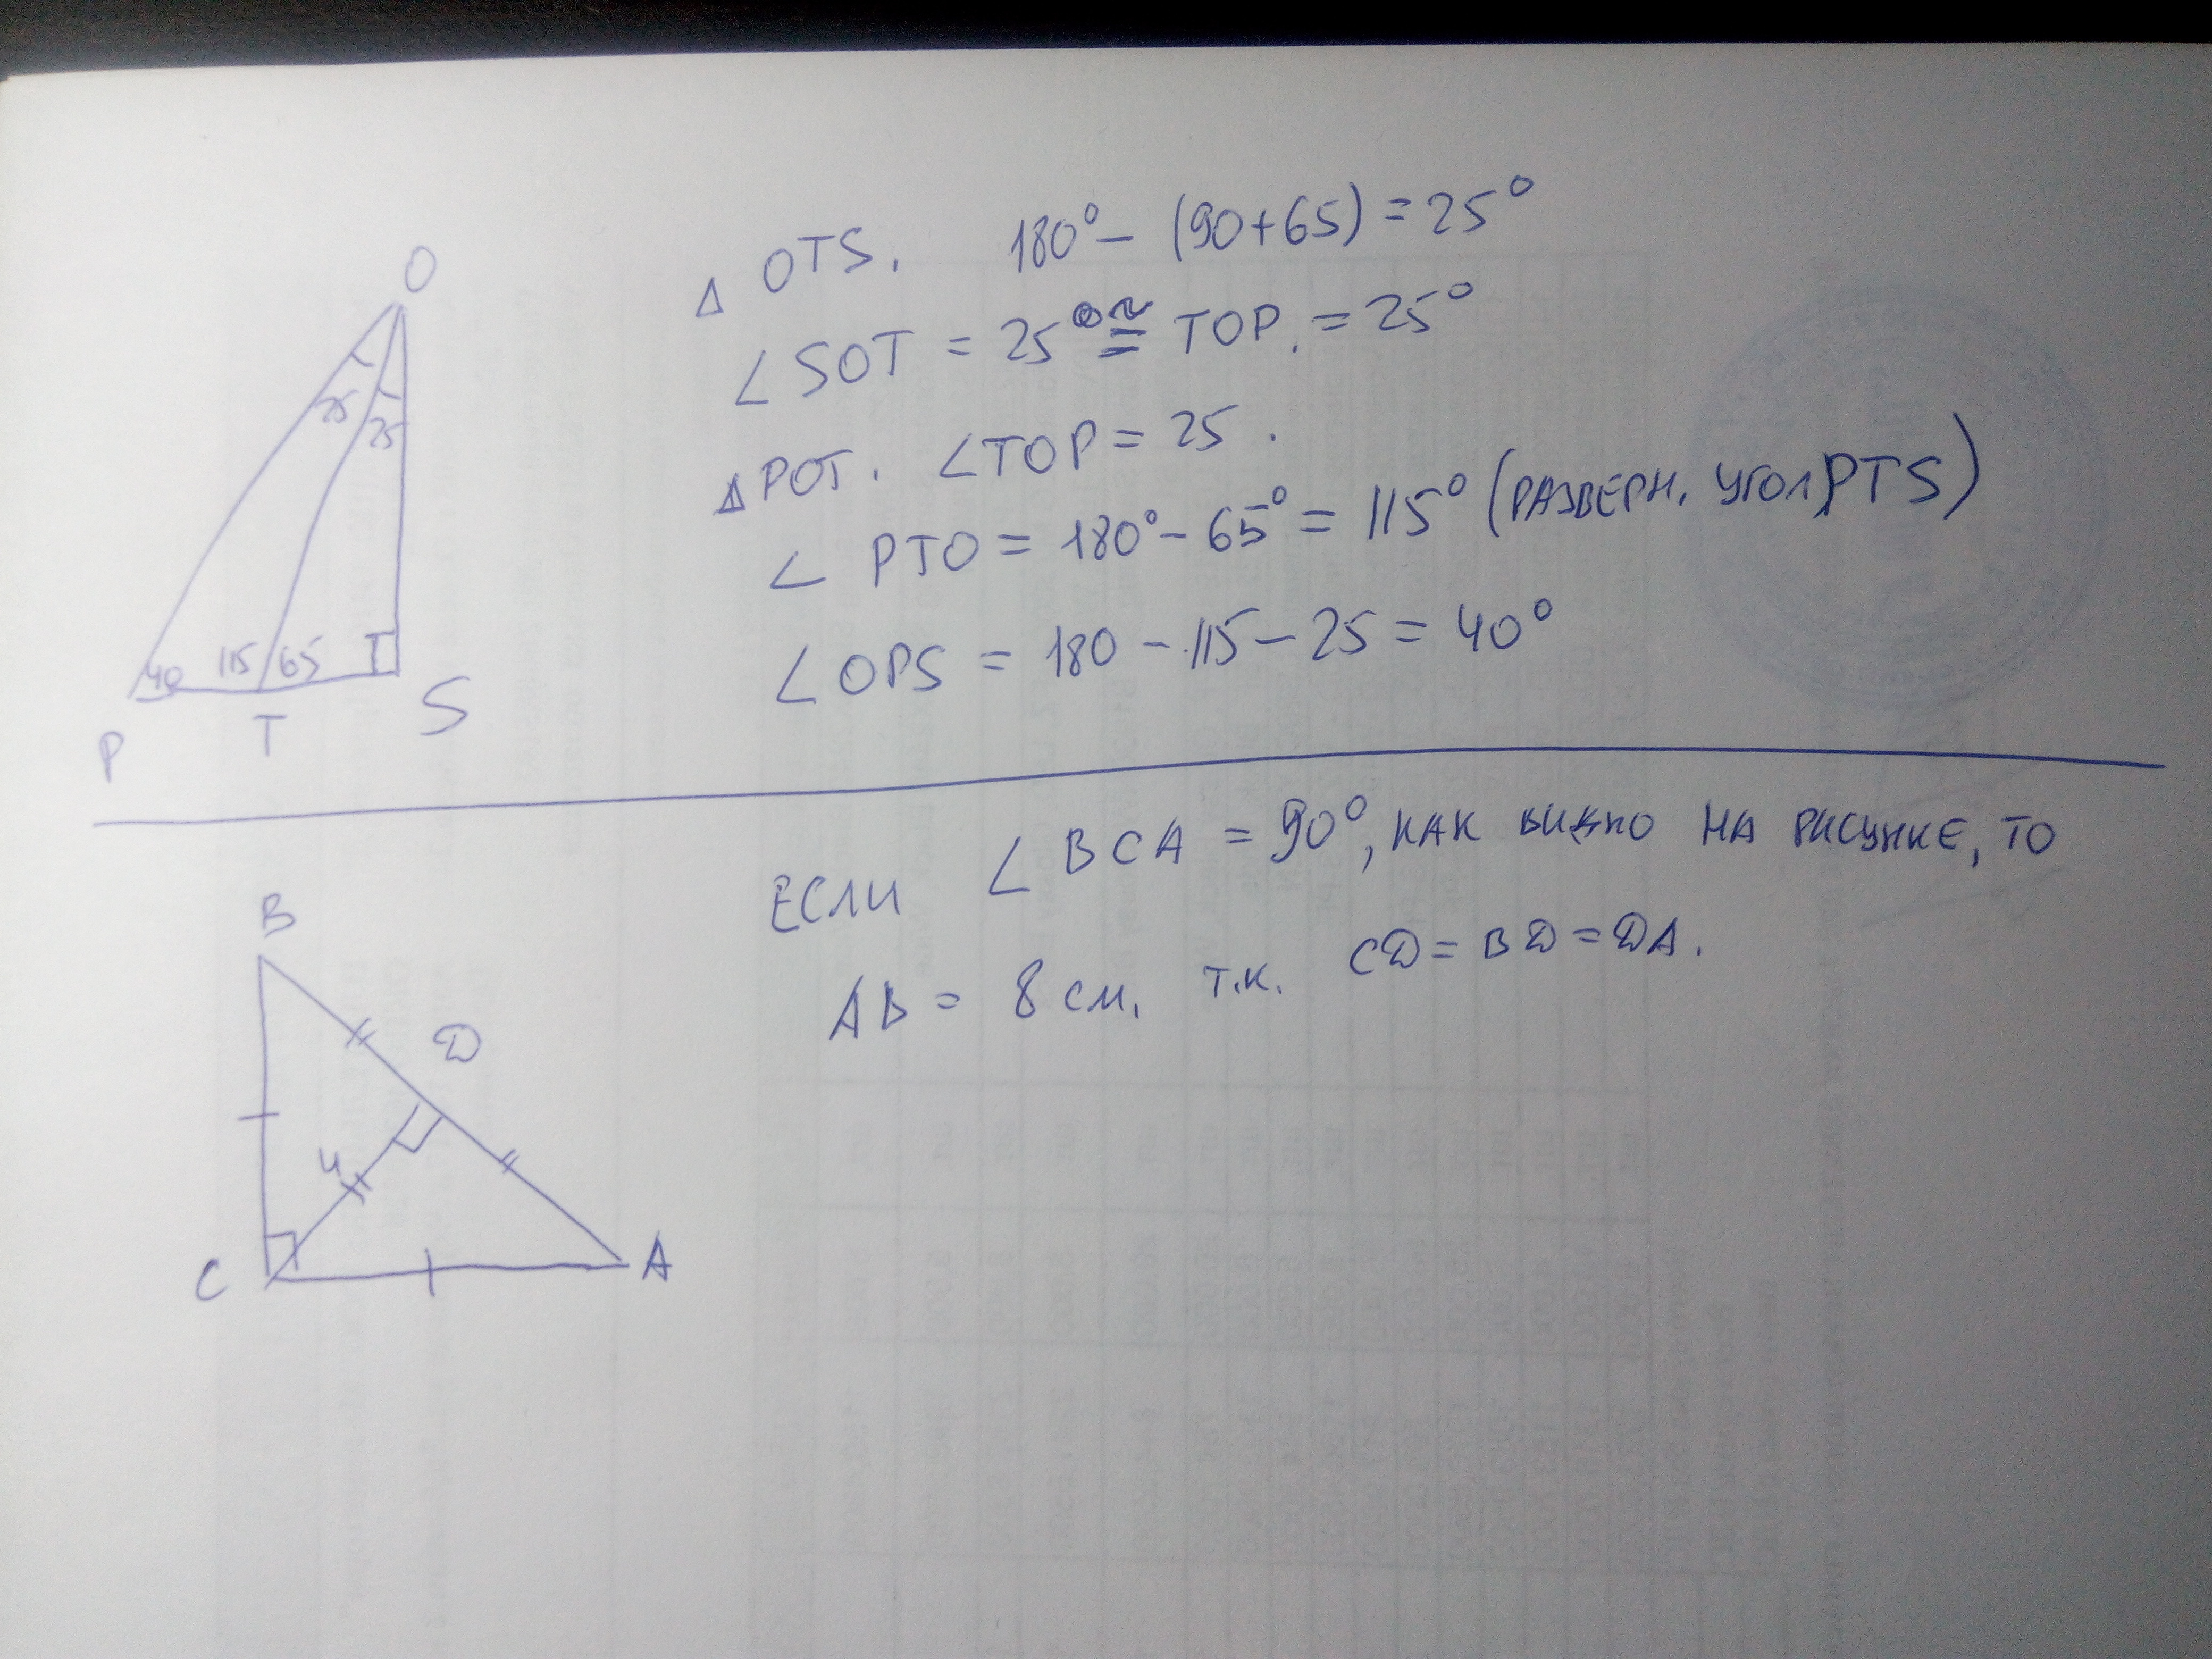 O
25
25
40 115 65
P T S
△ OTS. 180° – (90+65) = 25°
∠ SOT = 25° ≅ TOP. = 25°
△ POT. ∠TOP = 25.
∠ PTO = 180° – 65° = 115° (РАЗВЕРН. УГОЛ PTS)
∠ OPS = 180 – 115 – 25 = 40°
B
D
4
C A
ЕСЛИ ∠ BCA = 90°, КАК ВИДНО НА РИСУНКЕ, ТО
AB = 8 см. т.к. CD = BD = DA.